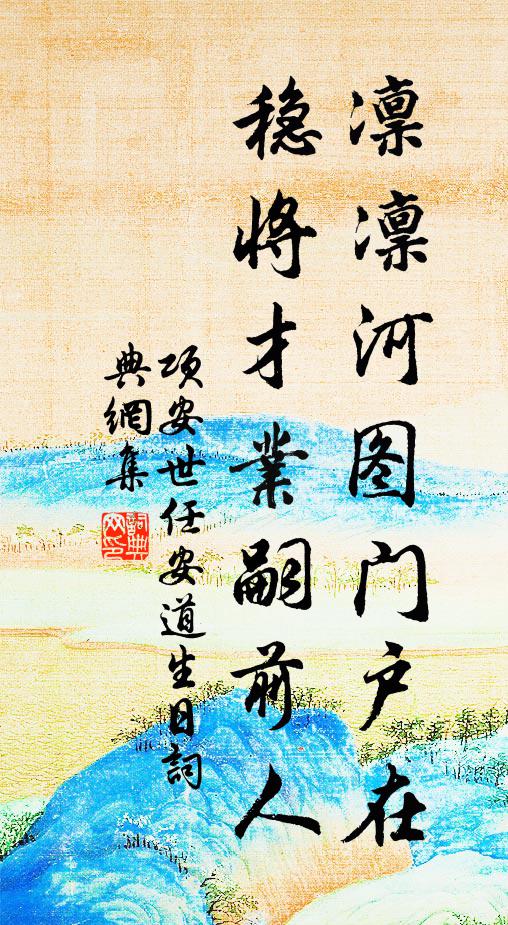 凛凛河图门户在
稳将才業嗣前人
项安世任安道生日詞
典網集
詞典